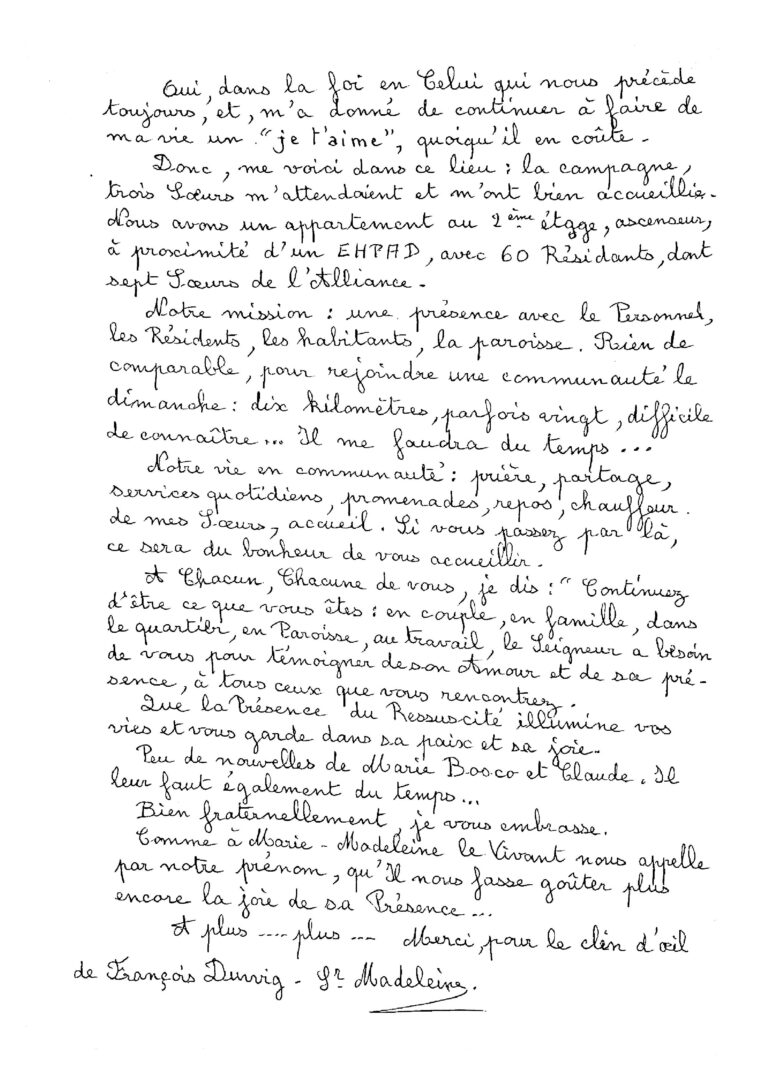 Oui, dans la foi en Celui qui nous précède
toujours, et, m'a donné de continuer à faire de
ma vie un "je t'aime", quoiqu'il en coûte.
Donc, me voici dans ce lieu : la campagne,
trois Sœurs m'attendaient et m'ont bien accueillie.
Nous avons un appartement au 2ème étage, ascenseur,
à proximité d'un EHPAD, avec 60 Résidants, dont
sept Sœurs de l'Alliance.
Notre mission : une présence avec le Personnel,
les Résidents, les habitants, la paroisse. Rien de
comparable, pour rejoindre une communauté le
dimanche : dix kilomètres, parfois vingt, difficile
de connaître... Il me faudra du temps...
Notre vie en communauté : prière, partage,
services quotidiens, promenades, repos, chauffeur
de mes Sœurs, accueil. Si vous passez par là,
ce sera du bonheur de vous accueillir.
A Chacun, Chacune de vous, je dis : " Continuez
d'être ce que vous êtes : en couple, en famille, dans
le quartier, en Paroisse, au travail, le Seigneur a besoin
de vous pour témoigner de son Amour et de sa pré-
sence, à tous ceux que vous rencontrez.
Que la Présence du Ressuscité illumine vos
vies et vous garde dans sa paix et sa joie.
Peu de nouvelles de Marie Bosco et Claude. Il
leur faut également du temps...
Bien fraternellement, je vous embrasse.
Comme à Marie-Madeleine le Vivant nous appelle
par notre prénom, qu'Il nous fasse goûter plus
encore la joie de sa Présence...
A plus .... plus --- Merci, pour le clin d'œil
de François - Sr Madeleine.